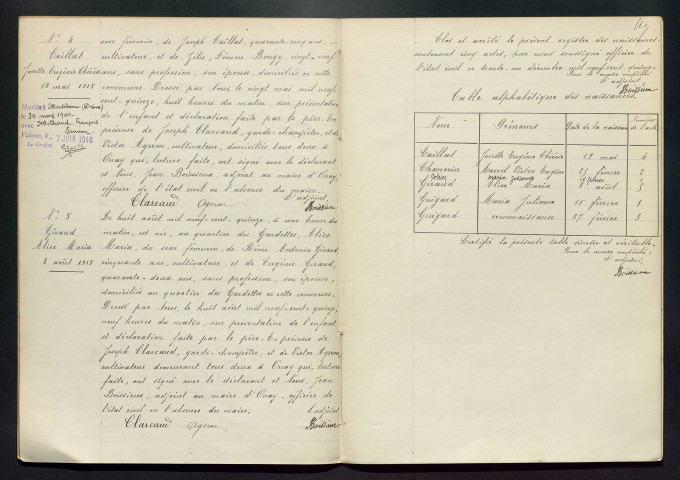 N° 4
Caillat
Joseette Eugénie Thérèse
18 mai 1915
Mariée à
le 30 mars 1940
avec
7 JUIN 1940
sexe féminin, de Joseph Caillat, quarante-cinq ans,
cultivateur et de Zélie, Simone Bergy, vingt-neuf
ans, sans profession, son épouse, domiciliés en cette
commune. Dressé par Nous le vingt mai mil neuf
cent-quinze, huit heures du matin, sur présentation
de l'enfant et déclaration faite par le père. En
présence de Joseph Clareaud, garde-champêtre, et de
Victor Agron, cultivateur, domiciliés tous deux à
Onay que, lecture faite, ont signé avec le déclarant
et Nous, Jean Boissieux, adjoint au maire d'Onay,
officier de l'état civil en l'absence du maire.
L'adjoint
Clareaud Agron Boissieux
N° 5
Giraud
Elise Maria
8 août 1915
Du huit août mil neuf-cent-quinze, à une heure du
matin, est née, au quartier des Gardettes, Elise
Maria, du sexe féminin, de Rémi Antonin Giraud,
cinquante ans, cultivateur, et de Eugénie Giraud,
quarante-deux ans, sans profession, son épouse,
domiciliés au quartier des Gardettes en cette commune.
Dressé par Nous, le huit août mil neuf-cent-quinze,
neuf heures du matin, sur présentation de l'enfant
et déclaration faite par le père. En présence de
Joseph Clareaud, garde-champêtre, et de Victor Agron,
cultivateur demeurant tous deux à Onay que, lecture
faite, ont signé avec le déclarant et Nous, Jean
Boissieux, adjoint au maire d'Onay, officier de
l'état civil en l'absence du maire.
L'adjoint
Clareaud Agron Boissieux
Clos et arrêté le présent registre des naissances
contenant cinq actes, par nous soussigné officier de
l'état civil ce trente-un décembre mil neuf-cent-quinze.
Pour le maire empêché
L'adjoint
Boissieux
Table alphabétique des naissances.
Nom Prénoms Date de la naissance Numéro de l'acte
Caillat Joseette Eugénie Thérèse 18 mai 4
Chauvin Marcel Victor Eugène 25 février 2
Giraud Elise Maria 8 août 5
Guigard Maria Julienne 15 février 1
Guigard reconnaissance 27 février 3
Certifié la présente table sincère et véritable.
Pour le maire empêché :
L'adjoint,
Boissieux